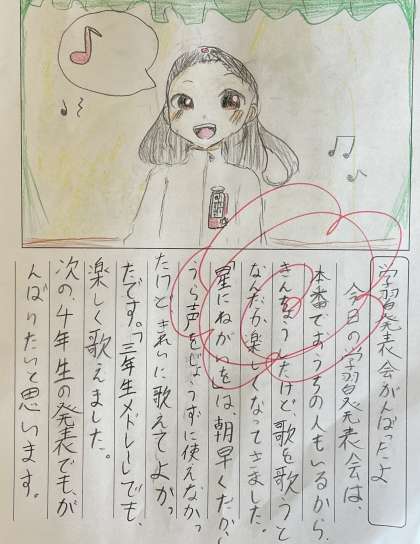 学習発表会がんばったよ
今日の学習発表会は、
本番でおうちの人もいるから、
きんちょうしたけど、歌を歌うと
なんだか楽しくなってきました。
「星にねがいを」は、朝早くだから、
うら声をじょうずに使えなかっ
たけど、きれいに歌えてよかっ
たです。「三年生メドレー」でも、
楽しく歌えました。
次の、4年生の発表でも、が
んばりたいと思います。